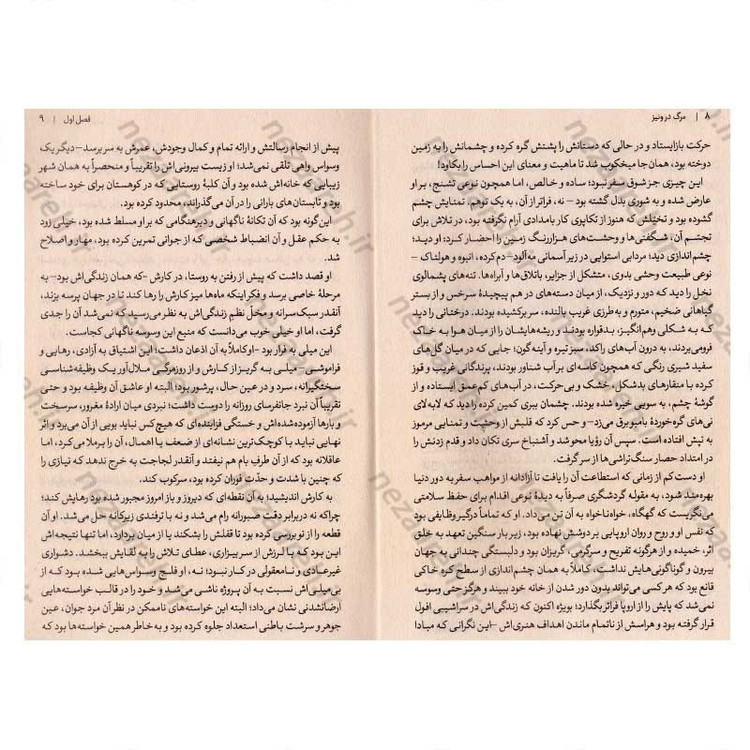 ۸ | مرگ در ونیز
حرکت بازایستاد و در حالی که دستانش را پشتش گره کرده و چشمانش را به زمین
دوخته بود، همان‌جا میخکوب شد تا ماهیت و معنای این احساس را بکاود!
این چیزی جز شوق سفر نبود؛ ساده و خالص، اما همچون نوعی تشنج، بر او
عارض شده و به شوری بدل گشته بود – نه، فراتر از آن، به یک توهم. تمنایش چشم
گشوده بود و تخیلش که هنوز از تکاپوی کار بامدادی آرام نگرفته بود، در تلاش برای
تجسم آن، شگفتی‌ها و وحشت‌های هزاررنگ زمین را احضار کرد: او دید؛
چشم‌اندازی دید؛ مردابی استوایی در زیر آسمانی مه‌آلود– دم‌کرده، انبوه و هولناک –
نوعی طبیعت وحشی بدوی، متشکل از جزایر، باتلاق‌ها و آبراه‌ها. تنه‌های پشمالوی
نخل را دید که دور و نزدیک، از میان دسته‌های در هم پیچیدهٔ سرخس و از بستر
گیاهانی ضخیم، متورم و به‌طرزی غریب بالنده، سر برکشیده بودند. درختانی را دید
که به شکلی وهم‌انگیز، بدقواره بودند و ریشه‌هایشان را از میان هوا به خاک
فرومی‌بردند، به درون آب‌های راکد، سبز تیره و آینه‌گون؛ جایی که در میان گل‌های
سفید شیری رنگی که همچون کاسه‌ای بر آب شناور بودند، پرندگانی غریب و قوز
کرده با منقارهای بدشکل، خشک و بی‌حرکت، در آب‌های کم‌عمق ایستاده و از
گوشهٔ چشم، به سویی خیره شده بودند. چشمان ببری کمین کرده را دید که لابه‌لای
نی‌های گره‌خوردهٔ بامبو برق می‌زد– و حس کرد که قلبش از وحشت و تمنایی مرموز
به تپش افتاده است. سپس آن رؤیا محو شد و آشنباخ سری تکان داد و قدم زدنش را
در امتداد حصار سنگ‌تراشی‌ها از سر گرفت.
او دست کم از زمانی که استطاعت آن را یافت تا آزادانه از مواهب سفر به دور دنیا
بهره‌مند شود، به مقوله گردشگری صرفاً به دیدهٔ نوعی اقدام برای حفظ سلامتی
می‌نگریست که گهگاه، خواه‌ناخواه به آن تن می‌داد. او که تماماً درگیر وظایفی بود
که نفس او و روح و روان اروپایی بر دوشش نهاده بود، زیر بار سنگین تعهد به خلق
اثر، خمیده و از هرگونه تفریح و سرگرمی، گریزان بود و دلبستگی چندانی به جهان
بیرون و گوناگونی‌هایش نداشت، کاملاً به همان چشم‌اندازی از سطح کره خاکی
قانع بود که هر کسی می‌تواند بدون دور شدن از خانه خود ببیند و هرگز حتی وسوسه
نمی‌شد که پایش را از اروپا فراتر بگذارد؛ بویژه اکنون که زندگی‌اش در سراشیبی افول
قرار گرفته بود و هراسش از ناتمام ماندن اهداف هنری‌اش –این نگرانی که مبادا
فصل اول | ۹
پیش از انجام رسالتش و ارائه تمام و کمال وجودش، عمرش به سر برسد– دیگر یک
وسواس واهی تلقی نمی‌شد؛ او زیست بیرونی‌اش را تقریباً و منحصراً به همان شهر
زیبایی که خانه‌اش شده بود و آن کلبهٔ روستایی که در کوهستان برای خود ساخته
بود و تابستان‌های بارانی را در آن می‌گذراند، محدود کرده بود.
این‌گونه بود که آن تکانهٔ ناگهانی و دیرهنگامی که بر او مسلط شده بود، خیلی زود
به حکم عقل و آن انضباط شخصی که از جوانی تمرین کرده بود، مهار و اصلاح
شد.
او قصد داشت که پیش از رفتن به روستا، در کارش –که همان زندگی‌اش بود– به
مرحلهٔ خاصی برسد و فکر اینکه ماه‌ها میز کارش را رها کند تا در جهان پرسه بزند،
آنقدر سبک‌سرانه و مخلّ نظم زندگی‌اش به نظر می‌رسید که نمی‌شد آن را جدی
گرفت، اما او خیلی خوب می‌دانست که منبع این وسوسه ناگهانی کجاست.
این میلی به فرار بود –او کاملاً به آن اذعان داشت؛ این اشتیاق به آزادی، رهایی و
فراموشی – میلی به گریز از کارش و از روزمرگی ملال‌آور یک وظیفه‌شناسی
سختگیرانه، سرد و در عین حال، پرشور بود؛ البته او عاشق آن وظیفه بود و حتی
تقریباً آن نبرد جانفرسای روزانه را دوست داشت؛ نبردی میان ارادهٔ مغرور، سرسخت
و بارها آزموده‌شده‌اش و خستگی فزاینده‌ای که هیچ کس نباید بویی از آن می‌برد و اثر
نهایی نباید با کوچک‌ترین نشانه‌ای از ضعف یا اهمال، آن را برملا می‌کرد، اما
عاقلانه بود که از آن طرف بام هم نیفتد و آنقدر لجاجت به خرج ندهد که نیازی را
که چنین با شدت و حدت فوران کرده بود، سرکوب کند.
به کارش اندیشید؛ به آن نقطه‌ای که دیروز و باز امروز مجبور شده بود رهایش کند؛
چراکه نه دربرابر دقت صبورانه رام می‌شد و نه با ترفندی زیرکانه حل می‌شد. او آن
قطعه را از نو بررسی کرده بود تا قفلش را بشکند یا از میان بردارد، اما تنها نتیجه‌اش
این بود که با لرزش از سر بیزاری، عطای تلاش را به لقایش ببخشد. دشواری
غیرعادی و نامعقولی در کار نبود؛ نه، او فلج وسواس‌هایی شده بود که از
بی‌میلی‌اش نسبت به آن پروژه ناشی می‌شد و خود را در قالب خواسته‌هایی
ارضانشدنی نشان می‌داد؛ البته این خواسته‌های ناممکن در نظر آن مرد جوان، عین
جوهر و سرشت باطنی استعداد جلوه کرده بود و به خاطر همین خواسته‌ها بود که
nezareh.ir